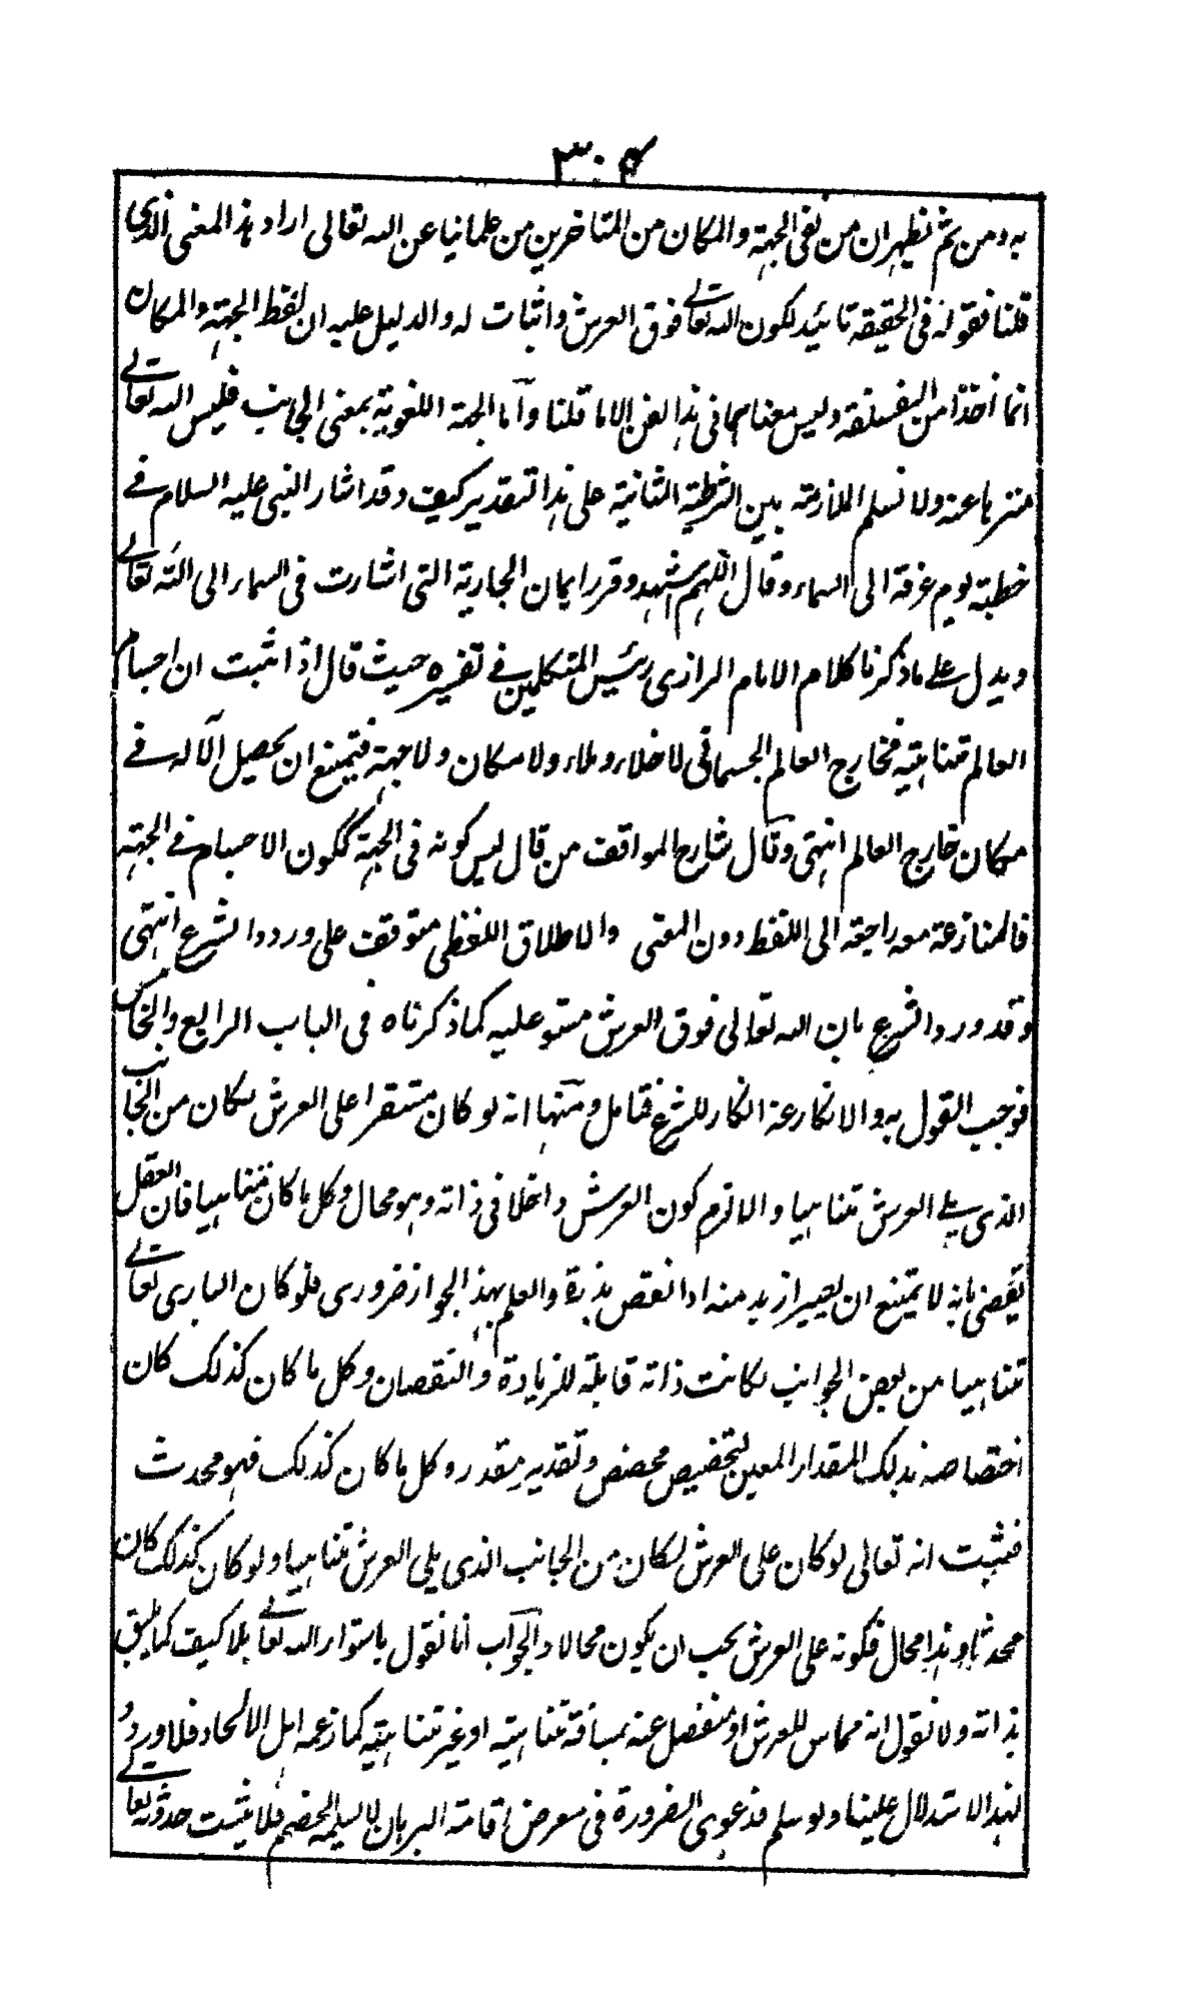 ٣٠۴
به ومن ثم نظهر ان من نفى الجهة والمكان من المتاخرين من علمائنا عن الله تعالى اراد بهذا المعنى الذى
قلنا فقوله فى الحقيقة تائيد لكون الله تعالى فوق العرش واثبات له والدليل عليه ان لفظ الجهة والمكان
انما أخذا من الفلسفة وليس معناهما فى هذا الفن الا ما قلنا وأما الجهة اللغوية بمعنى الجانب فليس الله تعالى
منزها عنه ولا نسلم الملازمة بين الشرطية الثانية على هذا التقدير كيف وقد اشار النبى عليه السلام فى
خطبة يوم عرفة الى السماء وقال اللهم اشهد وقرر ايمان الجارية التى اشارت فى السماء الى الله تعالى
ويدل على ماذكرنا كلام الامام الرازى رئيس المتكلمين فى تفسيره حيث قال اذا ثبت ان اجسام
العالم متناهية فخارج العالم الجسمانى لا خلاء وملاء ولا مكان ولا جهة فيمتنع ان يحصل الآله فى
مكان خارج العالم انتهى وقال شارح المواقف من قال ليس كونه فى الجهة ككون الاجسام فى الجهة
فالمنازعة معه راجعة الى اللفظ دون المعنى والاطلاق اللفظى متوقف على ورود الشرع انتهى
وقد ورد الشرع بان الله تعالى فوق العرش مستو عليه كما ذكرناه فى الباب الرابع والخامس
فوجب القول به والانكار عنه انكار للشرع فتامل ومنها انه لو كان مستقرا على العرش لكان من الجانب
الذى يلى العرش متناهيا والا لزم كون العرش داخلا فى ذاته وهو محال وكل ما كان متناهيا فان العقل
يقضى بانه لا يمتنع ان يصير ازيد منه او انقص بذرة والعلم بهذا الجواز ضرورى فلو كان البارى تعالى
متناهيا من بعض الجوانب لكانت ذاته قابلة للزيادة والنقصان وكل ما كان كذلك كان
اختصاصه بذلك المقدار المعين لتخصيص مخصص وتقدير مقدر وكل ما كان كذلك فهو محدث
فثبت انه تعالى لو كان على العرش لكان من الجانب الذى يلى العرش متناهيا ولو كان كذلك كان
محدثا وهذا محال فكونه على العرش يجب ان يكون محالا والجواب انا نقول باستواء الله تعالى بلا كيف كما يليق
بذاته ولا نقول انه مماس للعرش او منفصل عنه بمسافة متناهية او غير متناهية كما زعمه اهل الالحاد فلا ورود
لهذا الاستدلال علينا ولو سلم فدعوى الضرورة فى معرض اقامة البرهان لا يسلمه الخصم فلا يثبت حدوثه تعالى